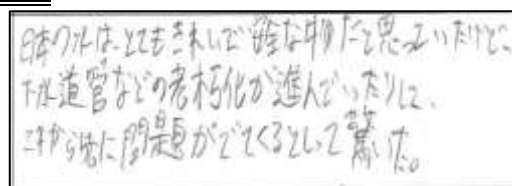 日本の水は、とてもきれいで安全な物だと思っていたけど、
下水道管などの老朽化が進んでいったりして、
これから先に問題がでてくるとして驚いた。